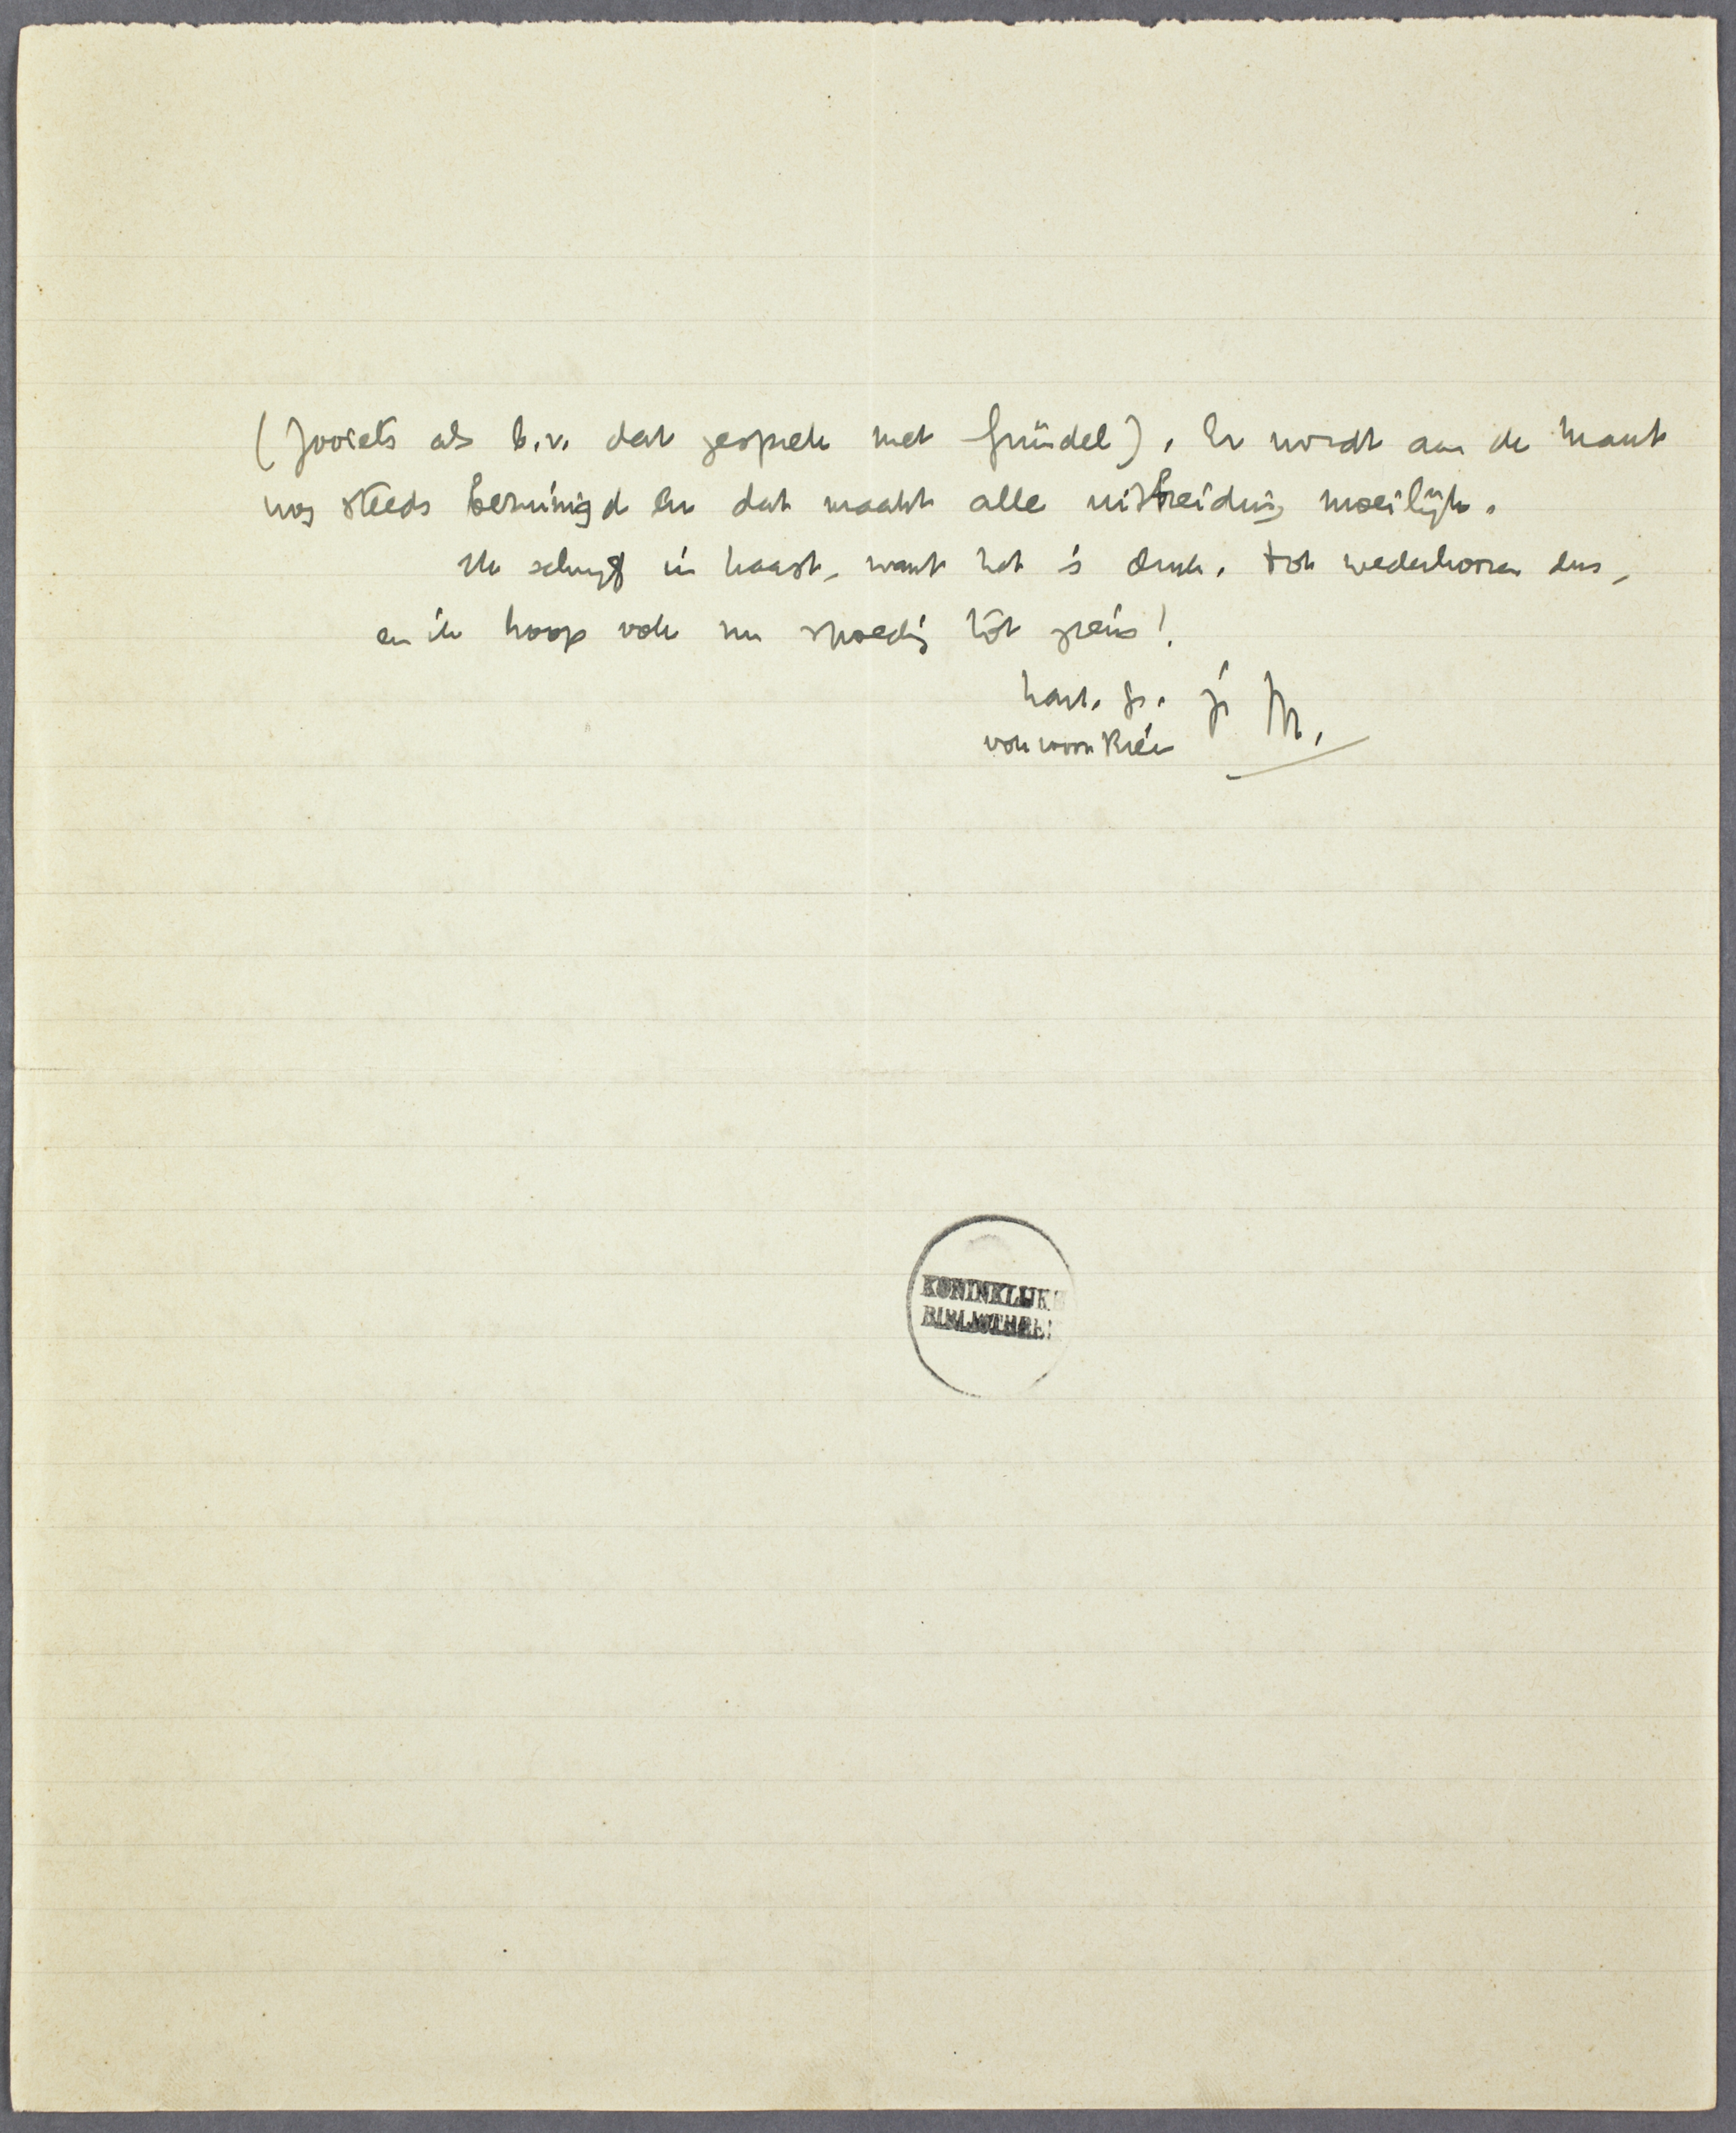 (zooiets als b.v. dat gesprek met Gründel). Er wordt aan de krant
nog steeds bezuinigd en dat maakt alle uitbreiding moeilijk.
Ik schrijf in haast, want het is druk. Tot wederhooren dus,
en ik hoop ook nu spoedig tot ziens!
hart. gr. je M.
ook voor Bréa
KONINKLIJKE
BIBLIOTHEEK